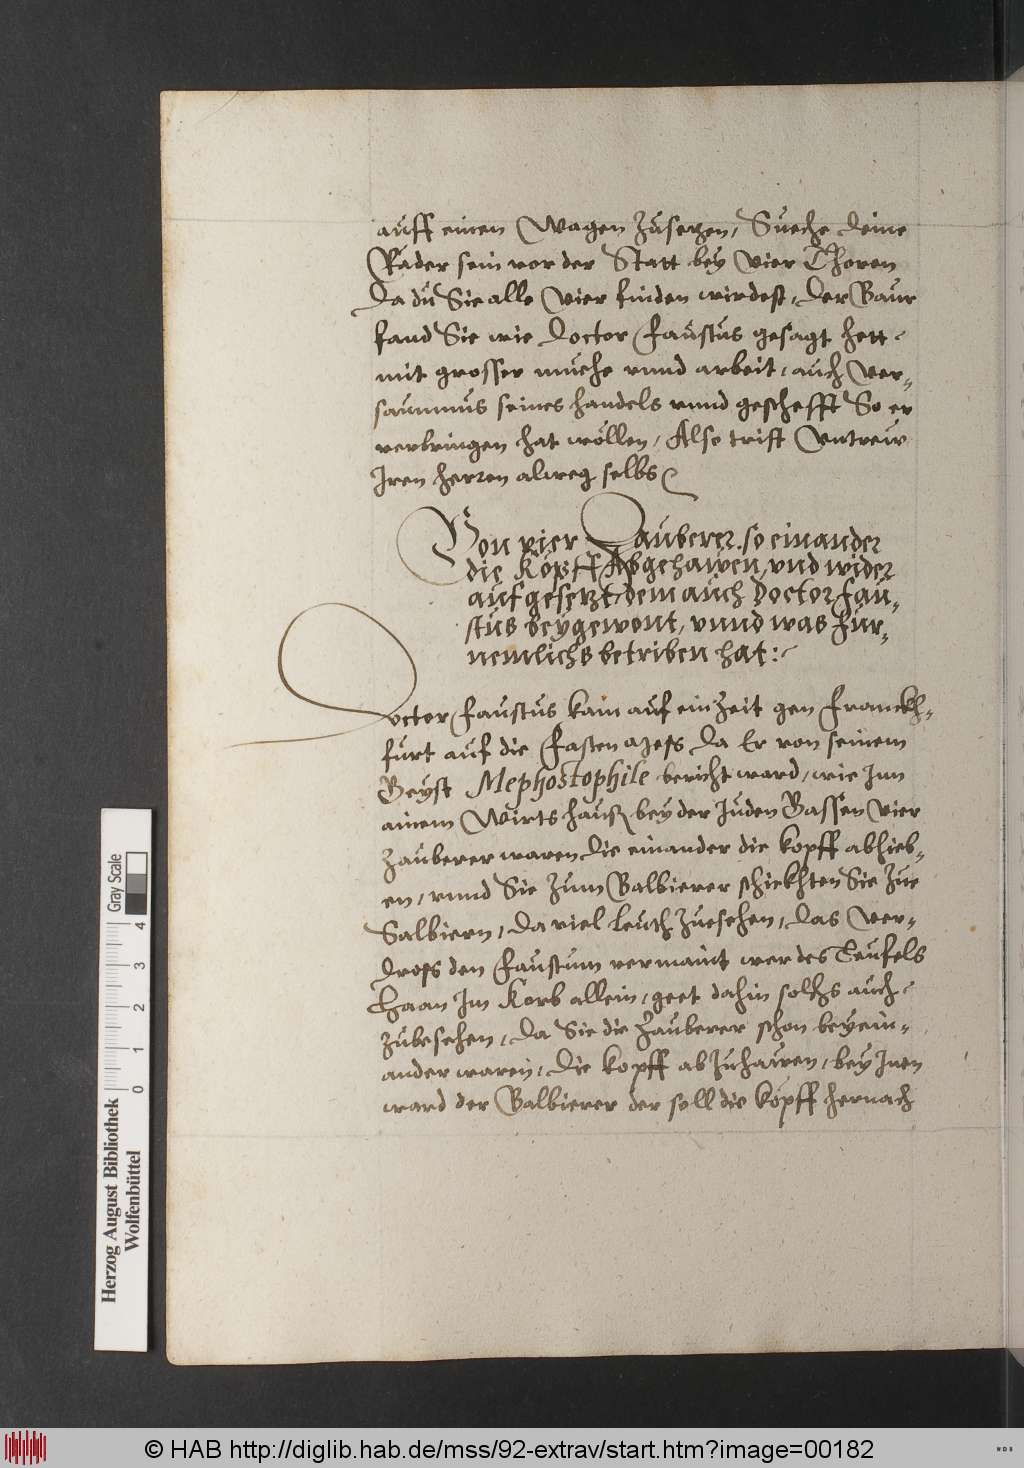 auff einen Wagen zusetzen, Sueche deine
Räder sein vor der Statt bey Vier Thoren
Da du Sie alle Vier finden wirdest, Der Baur
fand Sie wie Doctor Faustus gesagt hett
mit grosser muehe vnnd arbeit, auch Ver-
saumnus seines handels vnnd geschefft So er
verbringen hat wöllen, Also trifft Vntrew
Iren herren alweg selbs
Von vier Zauberer so einander
die Köpff Abgehawen, vnd wider
aufgesetzt, dem auch Doctor Fau-
stus beygewont, vnnd was Fur-
nemlichs betriben hat:
Doctor Faustus kam auf ein Zeit gen Franckh-
furt auf die Fasten Mess, Da Er von seinem
Geyst Mephostophile bericht ward, wie Inn
ainem Wirtshauß bey der Juden Gassen Vier
Zauberer waren, Die einander die kopff abhieb-
en, vnnd Sie Zum Balbierer schickhten Sie Zue
Balbiern, Da viel leuth Zuesehen, Das Ver-
dross den Faustum vermaint wer des Teufels
Haan Im Korb allein, geet dahin solchs auch
Zubesehen, Da Sie die Zauberer schon beyein-
ander waren, Die kopff abzuhawen, bey Inen
ward der Balbierer der soll die köpff hernach
Herzog August Bibliothek
Wolfenbüttel
Gray Scale
0 1 2 3 4
© HAB http://diglib.hab.de/mss/92-extrav/start.htm?image=00182
WDB